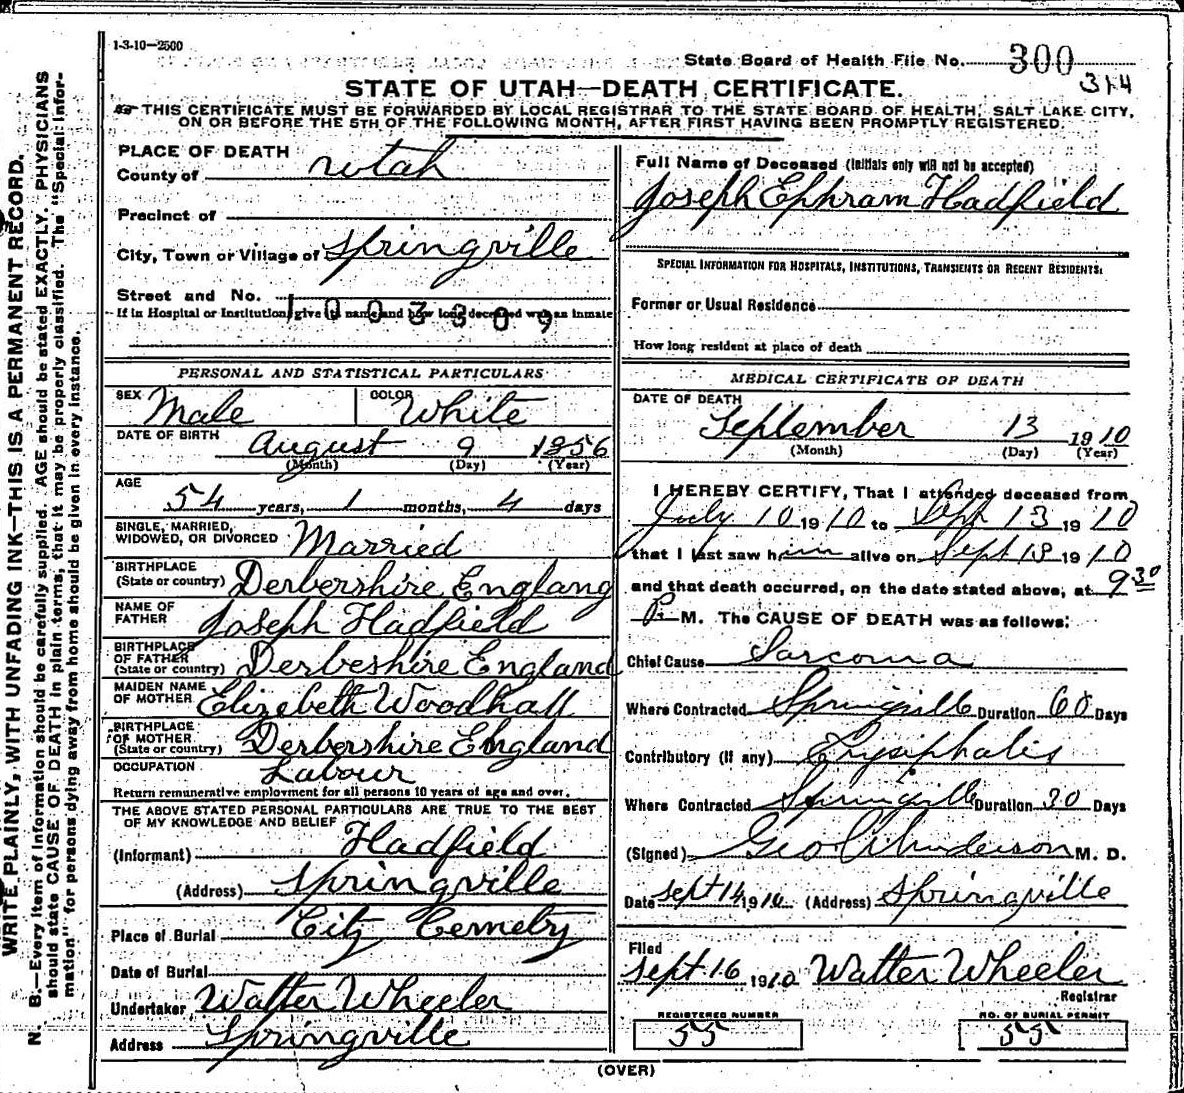 1-3-10—2500
State Board of Health File No. 300
314
STATE OF UTAH—DEATH CERTIFICATE.
THIS CERTIFICATE MUST BE FORWARDED BY LOCAL REGISTRAR TO THE STATE BOARD OF HEALTH, SALT LAKE CITY,
ON OR BEFORE THE 5TH OF THE FOLLOWING MONTH, AFTER FIRST HAVING BEEN PROMPTLY REGISTERED.
WRITE PLAINLY, WITH UNFADING INK—THIS IS A PERMANENT RECORD.
N. B.—Every item of information should be carefully supplied. AGE should be stated EXACTLY. PHYSICIANS
should state CAUSE OF DEATH in plain terms, that it may be properly classified. The "Special Infor-
mation" for persons dying away from home should be given in every instance.
PLACE OF DEATH
County of Utah
Precinct of
City, Town or Village of Springville
Street and No.
1003309
If in Hospital or Institution, give its name and how long deceased was an inmate
PERSONAL AND STATISTICAL PARTICULARS
SEX Male COLOR White
DATE OF BIRTH August 9 1856
(Month) (Day) (Year)
AGE
54 years, 1 months, 4 days
SINGLE, MARRIED,
WIDOWED, OR DIVORCED Married
BIRTHPLACE
(State or country) Derbershire Englang
NAME OF
FATHER Joseph Hadfield
BIRTHPLACE
OF FATHER
(State or country) Derbeshire England
MAIDEN NAME
OF MOTHER Elizebeth Woodhall
BIRTHPLACE
OF MOTHER
(State or country) Derbershire England
OCCUPATION Labour
Return remunerative employment for all persons 10 years of age and over.
THE ABOVE STATED PERSONAL PARTICULARS ARE TRUE TO THE BEST
OF MY KNOWLEDGE AND BELIEF
(Informant) Hadfield
(Address) Springville
Place of Burial City Cemetry
Date of Burial
Undertaker Walter Wheeler
Address Springville
Full Name of Deceased (Initials only will not be accepted)
Joseph Ephram Hadfield
SPECIAL INFORMATION FOR HOSPITALS, INSTITUTIONS, TRANSIENTS OR RECENT RESIDENTS:
Former or Usual Residence
How long resident at place of death
MEDICAL CERTIFICATE OF DEATH
DATE OF DEATH
September 13 1910
(Month) (Day) (Year)
I HEREBY CERTIFY, That I attended deceased from
July 10 1910 to Sept 13 1910
that I last saw him alive on Sept 13 1910
and that death occurred, on the date stated above, at 9 30
P. M. The CAUSE OF DEATH was as follows:
Chief Cause Sarcoma
Where Contracted Springville Duration 60 Days
Contributory (if any) Erysiphalis
Where Contracted Springville Duration 30 Days
(Signed) Geo Anderson M. D.
Date Sept 14 1910 (Address) Springville
Filed
Sept 16 1910 Walter Wheeler
Registrar
REGISTERED NUMBER
55
NO. OF BURIAL PERMIT
55
(OVER)